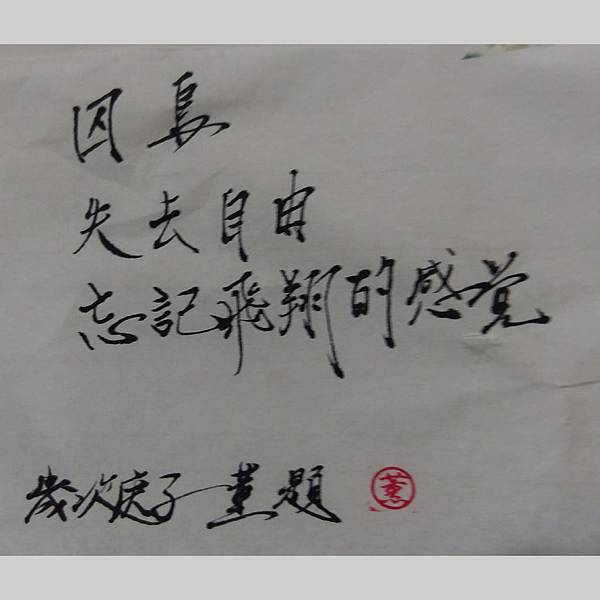 囚鳥
失去自由
忘記飛翔的感觉
歲次庚子薰題
薰